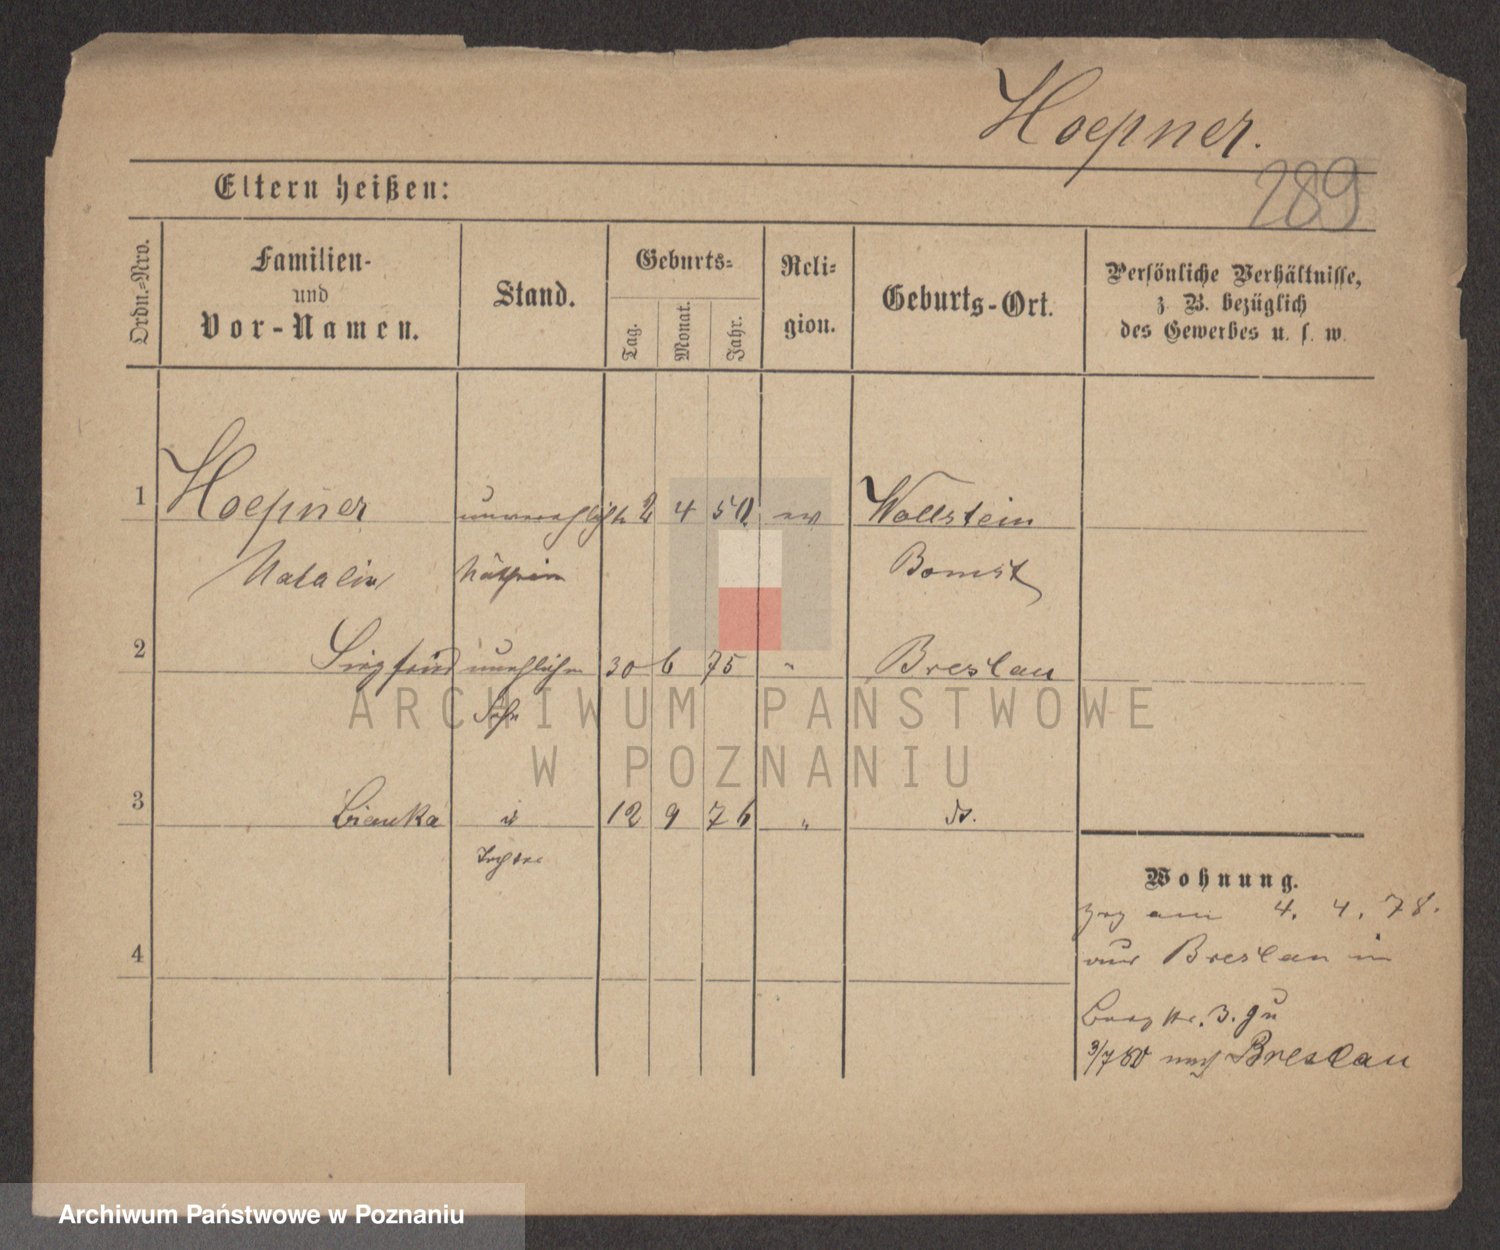 Hoepner.
289
Eltern heißen:
Ordn.=Nro.
Familien-
und
Vor-Namen.
Stand.
Geburts=
Tag.
Monat.
Jahr.
Reli=
gion.
Geburts-Ort.
Persönliche Verhältnisse,
z. B. bezüglich
des Gewerbes u. s. w.
1 Hoepner unverehlichte 2 4 50 ev Wollstein
Natalie Nätherin Bomst
2 Siegfried unehlicher 30 6 75 " Breslau
Sohn
ARCHIWUM PAŃSTWOWE
W POZNANIU
3 Bianka 12 9 76 " do.
Tochter
4
Wohnung.
zog am 4. 4. 78.
aus Breslau in
3.
3/7 80 nach Breslau
Archiwum Państwowe w Poznaniu